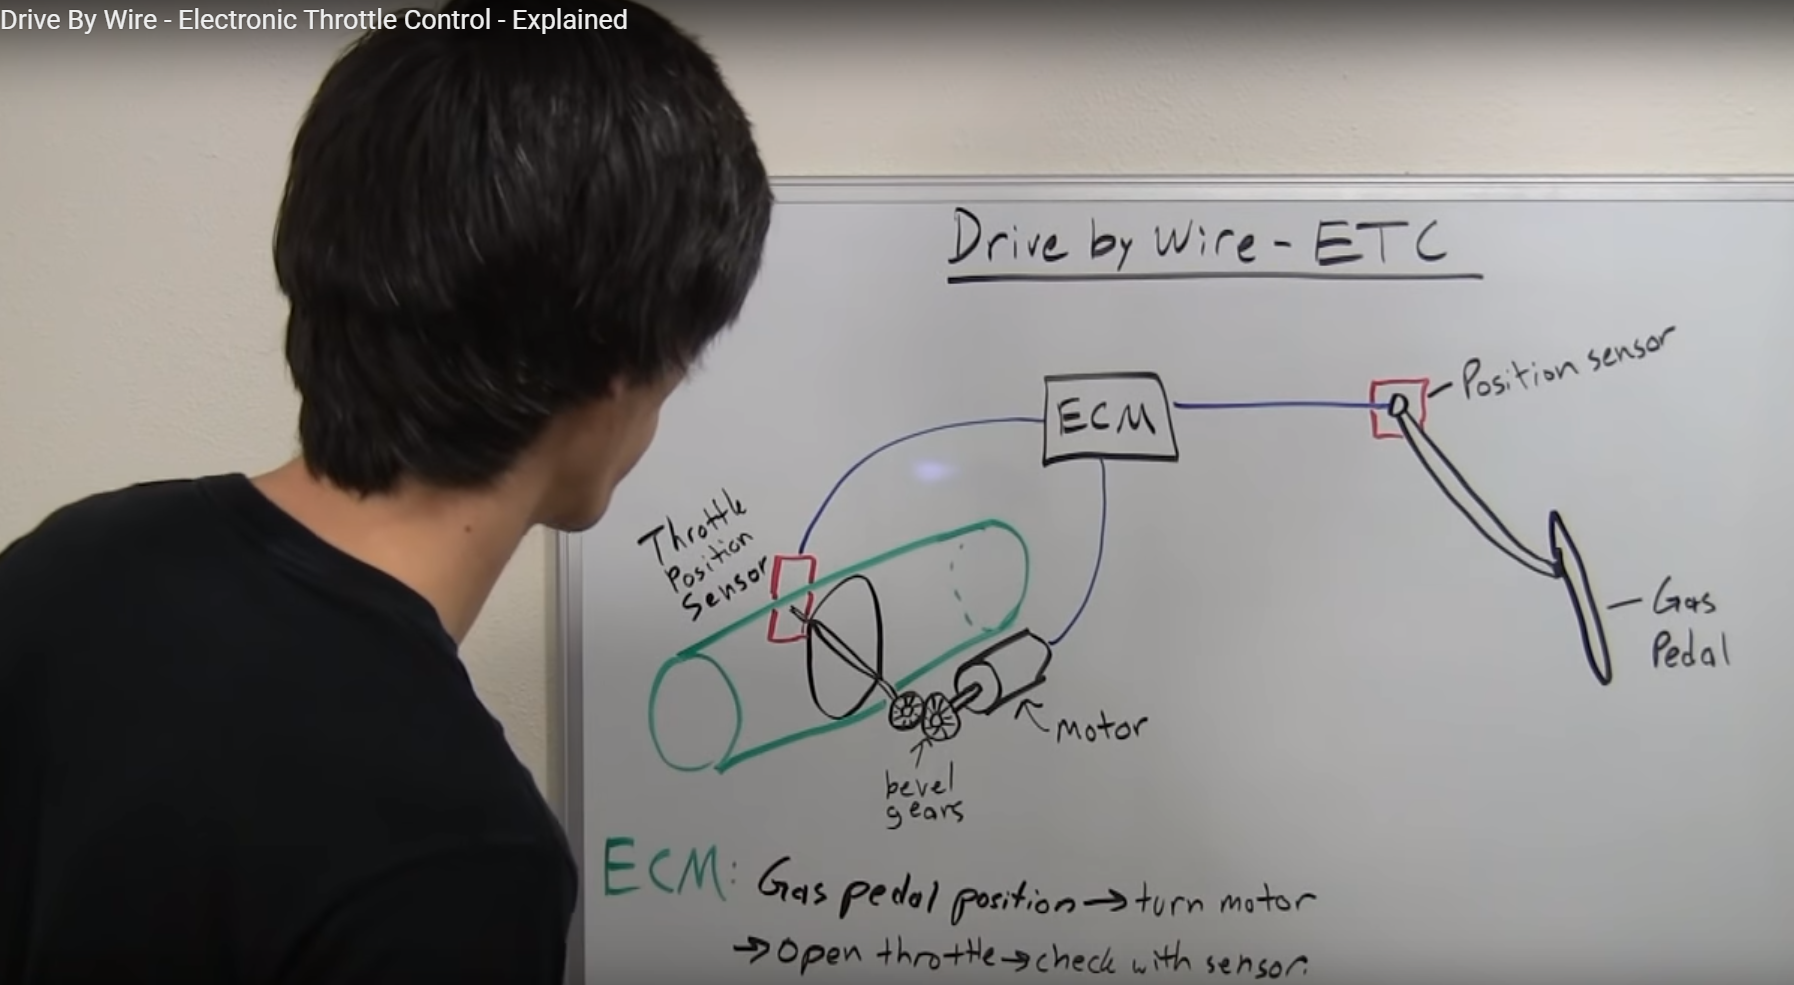 Drive By Wire - Electronic Throttle Control - Explained
Drive by Wire - ETC
Position sensor
ECM
Throttle
Position
Sensor
Gas
Pedal
motor
bevel
gears
ECM: Gas pedal position → turn motor
→ Open throttle → check with sensor.